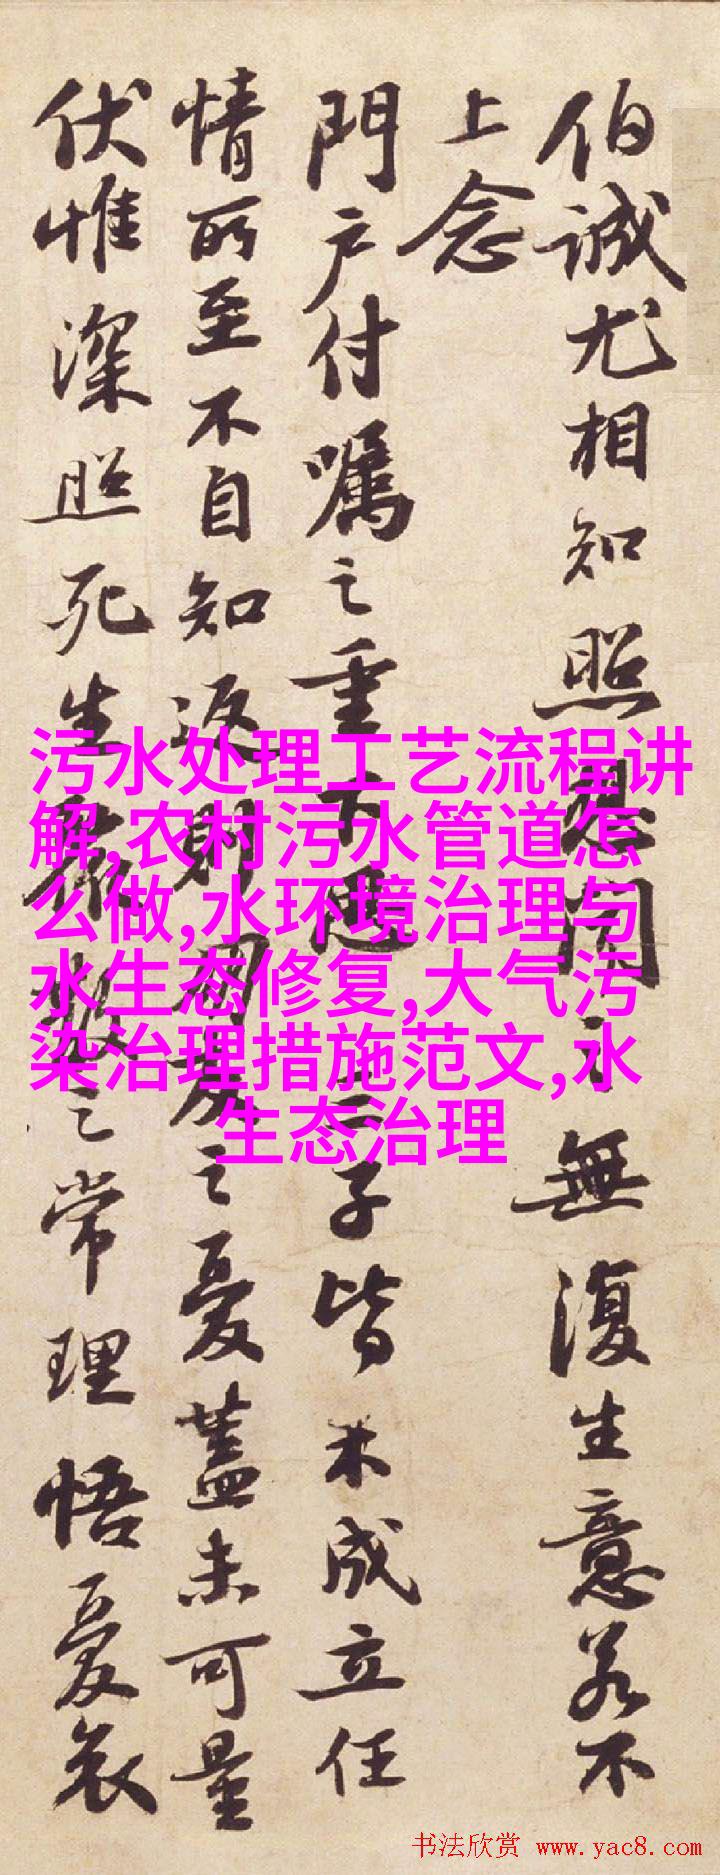 伯誠尤相知照想聞之無復生意若不
上念
門户付囑之重下思三子皆未成立任
情所至不自知返則朋友之憂蓋未可量
伏惟深照死生聚散之常理悟憂哀
污水处理工艺流程讲
解,农村污水管道怎
么做,水环境治理与
水生态修复,大气污
染治理措施范文,水
生态治理
书法欣赏 www.yac8.com